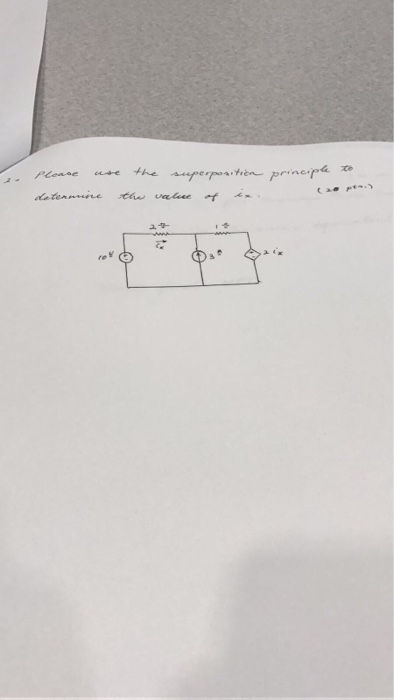 2. Please use the superposition principle to
determine the value of ix. (20 pts.)
2Ω 1Ω
ix
10V 3A 2ix